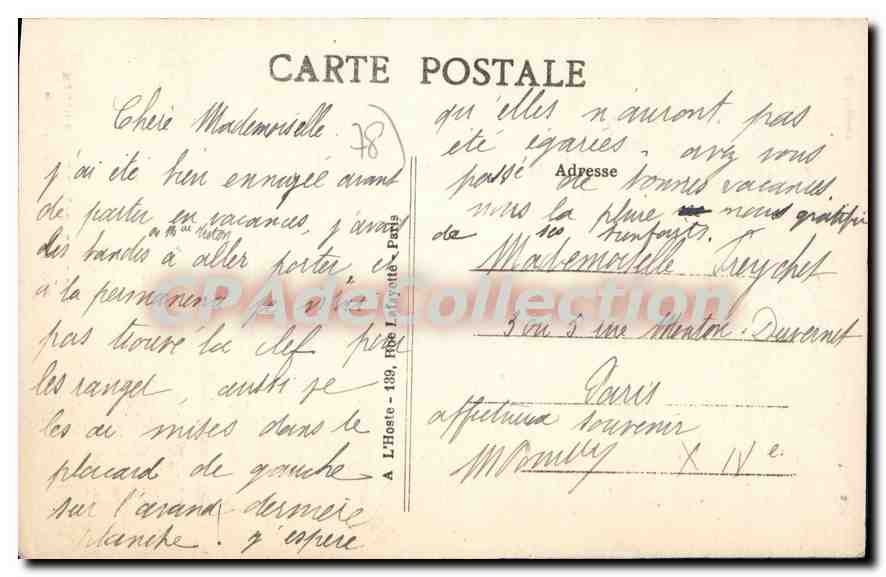 CARTE POSTALE
Chère Mademoiselle
78
j'ai été bien ennuyée avant
de partir en vacances, j'avais
des bandes à aller porter
à la permanence je n'ai
pas trouvé la clef pour
les ranger, aussi je
les ai mises dans le
placard de gauche
sur l'avant dernière
planche. j'espère
A L'Hoste - 139, Rue Lafayette - Paris
qu'elles n'auront pas
été égarées - avez vous
Adresse
passé de bonnes vacances
nous la pluie nous gratifie
de ses bienfaits.
Mademoiselle Freychet
3 ou 5 rue Mouton-Duvernet
Paris
affectueux souvenir
XIVe
CPAdeCollection